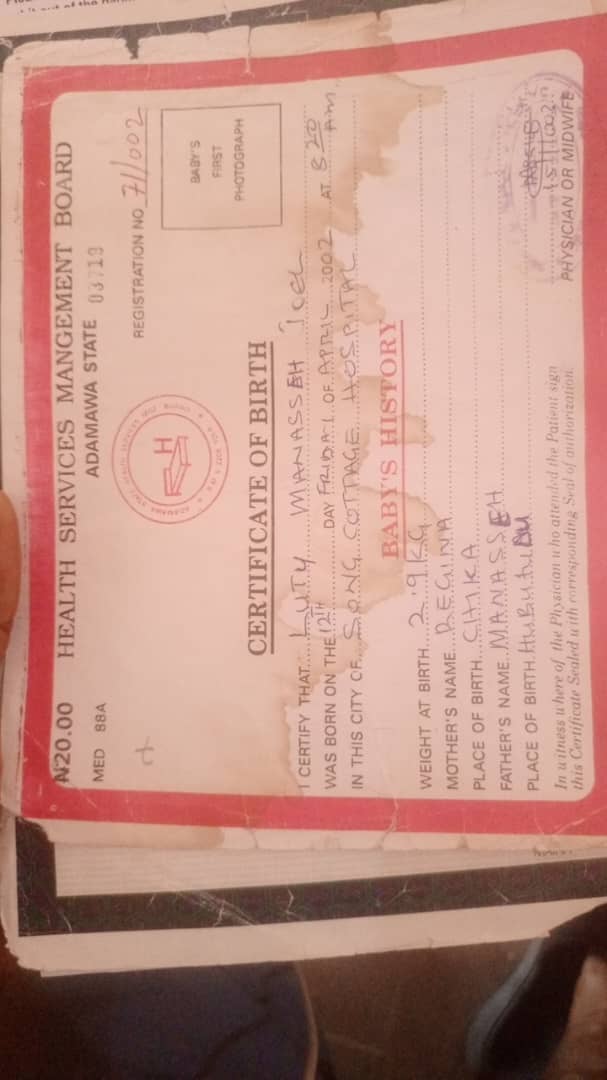 ₦20.00 HEALTH SERVICES MANGEMENT BOARD
MED 88A ADAMAWA STATE 03719
REGISTRATION NO 711002
BABY'S
FIRST
PHOTOGRAPH
H
CERTIFICATE OF BIRTH
I CERTIFY THAT LUTY MANASSEH Joel
WAS BORN ON THE 12TH DAY FRIDAY OF APRIL 2002 AT 8 20 am
IN THIS CITY OF SONG COTTAGE HOSPITAL
BABY'S HISTORY
WEIGHT AT BIRTH 2.9KG
MOTHER'S NAME REGINA
PLACE OF BIRTH
FATHER'S NAME MANASSEH
PLACE OF BIRTH
In witness where of the Physician who attended the Patient sign
this Certificate Sealed with corresponding Seal of authorization.
PHYSICIAN OR MIDWIFE